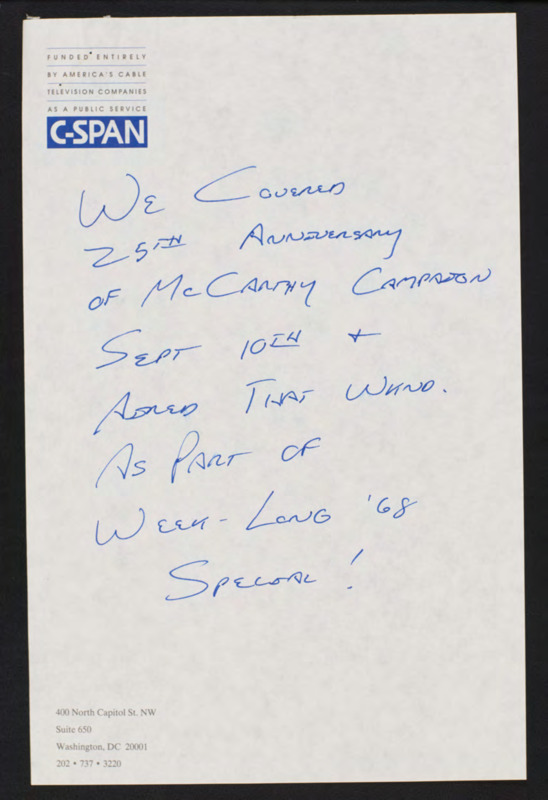 FUNDED ENTIRELY
BY AMERICA'S CABLE
TELEVISION COMPANIES
AS A PUBLIC SERVICE
C-SPAN
WE COVERED
25TH ANNIVERSARY
OF McCARTHY CAMPAIGN
SEPT 10TH +
AIRED THAT WKND.
AS PART OF
WEEK-LONG '68
SPECIAL!
400 North Capitol St. NW
Suite 650
Washington, DC 20001
202 • 737 • 3220